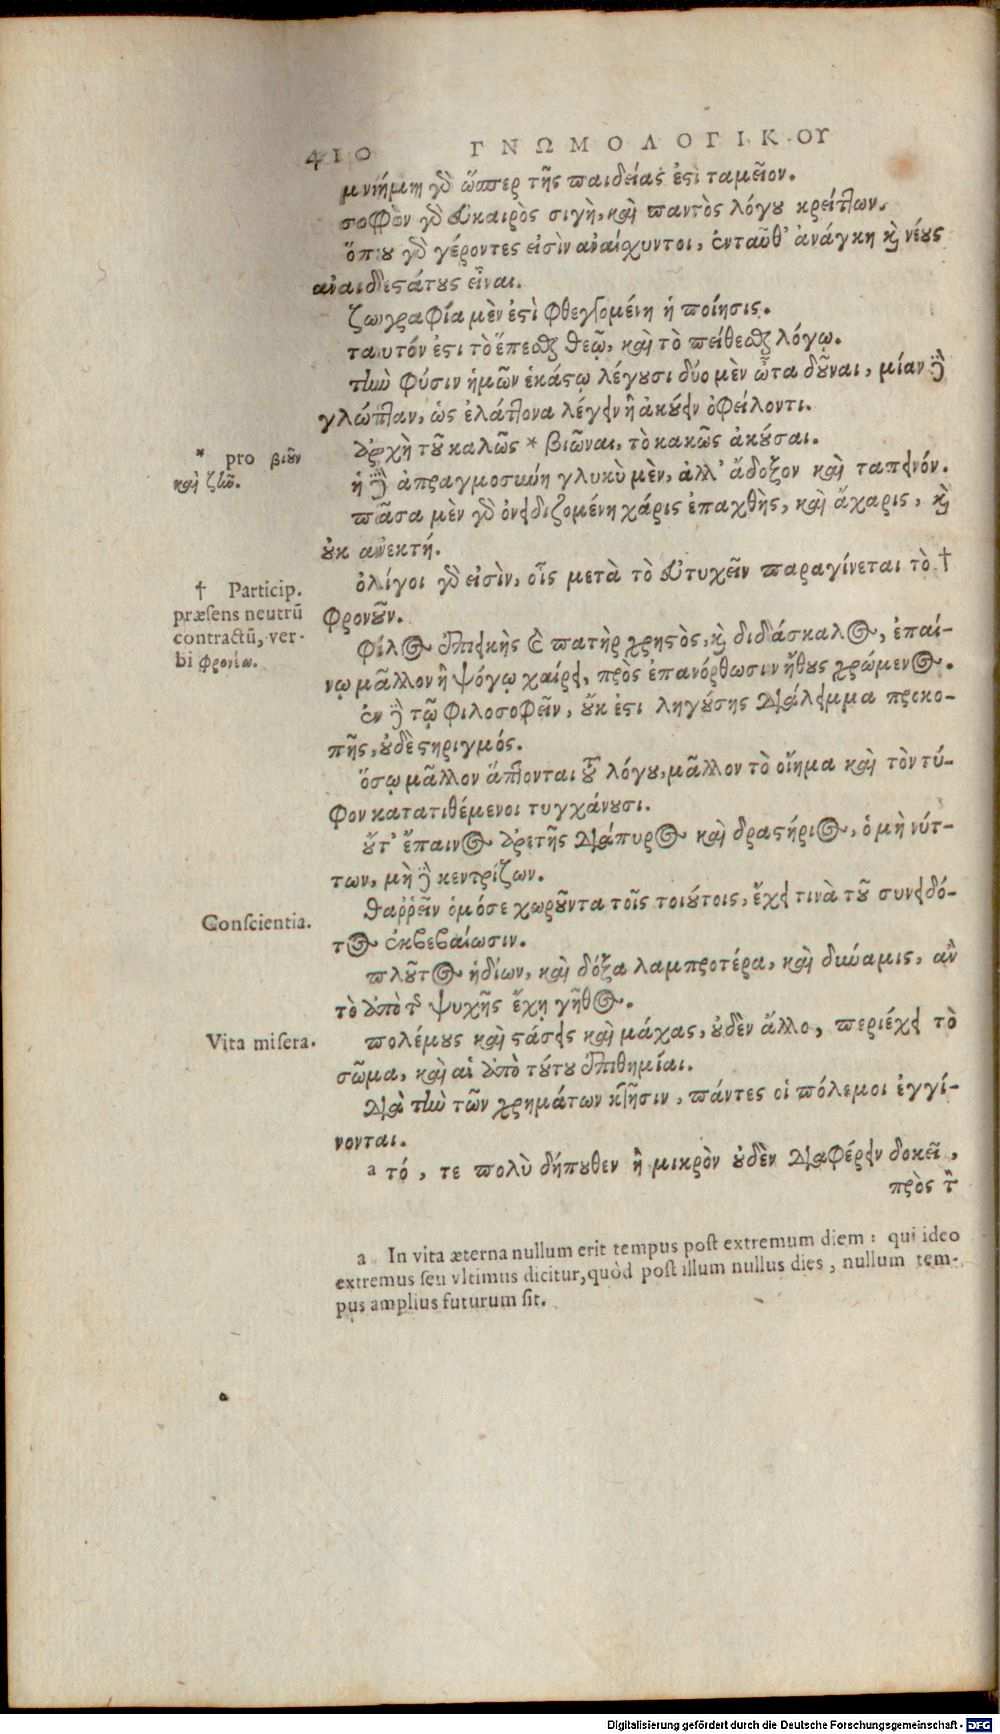 410 ΓΝΩΜΟΛΟΓΙΚΟΥ
μνήμη γὸ ὥσπερ τῆς παιδείας ἐςὶ ταμεῖον.
σοφὸν γὸ εὔκαιρὸς σιγὴ, καὶ παντὸς λόγου κρείττων.
ὅπου γὸ γέροντες εἰσὶν ἀναίσχυντοι, ἐνταῦθ' ἀνάγκη κὶ νέους
ἀναιδεςάτους εἶναι.
ζωγραφία μὲν ἐςὶ φθεγγομένη ἡ ποίησις.
ταυτόν ἐςι τὸ ἕπεσθαι θεῷ, καὶ τὸ πείθεσθαι λόγῳ.
τὴν φύσιν ἡμῶν ἑκάςῳ λέγουσι δύο μὲν ὦτα δοῦναι, μίαν δὲ
γλώτταν, ὡς ἐλάττονα λέγειν ἢ ἀκούειν ὀφείλοντι.
ἀρχὴ τοῦ καλῶς * βιῶναι, τὸ κακῶς ἀκοῦσαι.
* pro βιοῦν
καὶ ζῆν.
ἡ δὲ ἀπραγμοσύνη γλυκὺ μὲν, ἀλλ' ἄδοξον καὶ ταπεινόν.
πᾶσα μὲν γὸ ὀνειδιζομένη χάρις ἐπαχθὴς, καὶ ἄχαρις, κὶ
οὐκ ἀνεκτή.
ὀλίγοι γὸ εἰσὶν, οἷς μετὰ τὸ εὐτυχεῖν παραγίνεται τὸ †
φρονοῦν.
† Particip.
præſens neutrū
contractū, ver-
bi φρονέω.
φίλος ἐπιεικὴς ἐ πατὴρ χρηςὸς, κὶ διδάσκαλος, ἐπαί-
νῳ μᾶλλον ἢ ψόγῳ χαίρει, πρὸς ἐπανόρθωσιν ἤθους χρώμενος.
ἐν δὲ τῷ φιλοσοφεῖν, οὔκ ἐςι ληγούσης διάλειμμα προκο-
πῆς, οὐδὲ ςηριγμός.
ὅσῳ μᾶλλον ἅπτονται τοῦ λόγου, μᾶλλον τὸ οἴημα καὶ τὸν τύ-
φον κατατιθέμενοι τυγχάνουσι.
οὔτ' ἔπαινος ἀρετῆς διάπυρος καὶ δραςήριος, ὁ μὴ νύτ-
των, μὴ δὲ κεντρίζων.
Conſcientia.
θαῤῥεῖν ὁμόσε χωροῦντα τοῖς τοιούτοις, ἔχει τινὰ τοῦ συνειδό-
τος ἐκβεβαίωσιν.
πλοῦτος ἡδίων, καὶ δόξα λαμπροτέρα, καὶ δύναμις, ἂν
τὸ ἀπὸ τῆς ψυχῆς ἔχῃ γῆθος.
Vita miſera.
πολέμους καὶ ςάσεις καὶ μάχας, οὐδὲν ἄλλο, περιέχει τὸ
σῶμα, καὶ αἱ ἀπὸ τούτου ἐπιθημίαι.
διὰ τὴν τῶν χρημάτων κτῆσιν, πάντες οἱ πόλεμοι ἐγγί-
νονται.
a τό, τε πολὺ δήπουθεν ἢ μικρὸν οὐδὲν διαφέρειν δοκεῖ,
πρὸς τὸν
a In vita æterna nullum erit tempus poſt extremum diem: qui ideo
extremus ſeu vltimus dicitur, quòd poſt illum nullus dies, nullum tem-
pus amplius futurum ſit.
Digitalisierung gefördert durch die Deutsche Forschungsgemeinschaft - DFG